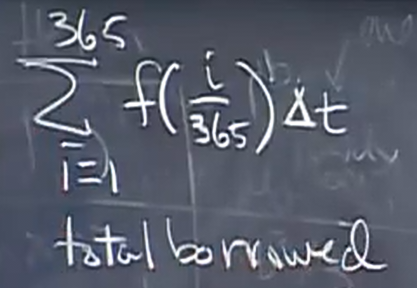 365
∑ f(i/365) Δt
i=1
total borrowed